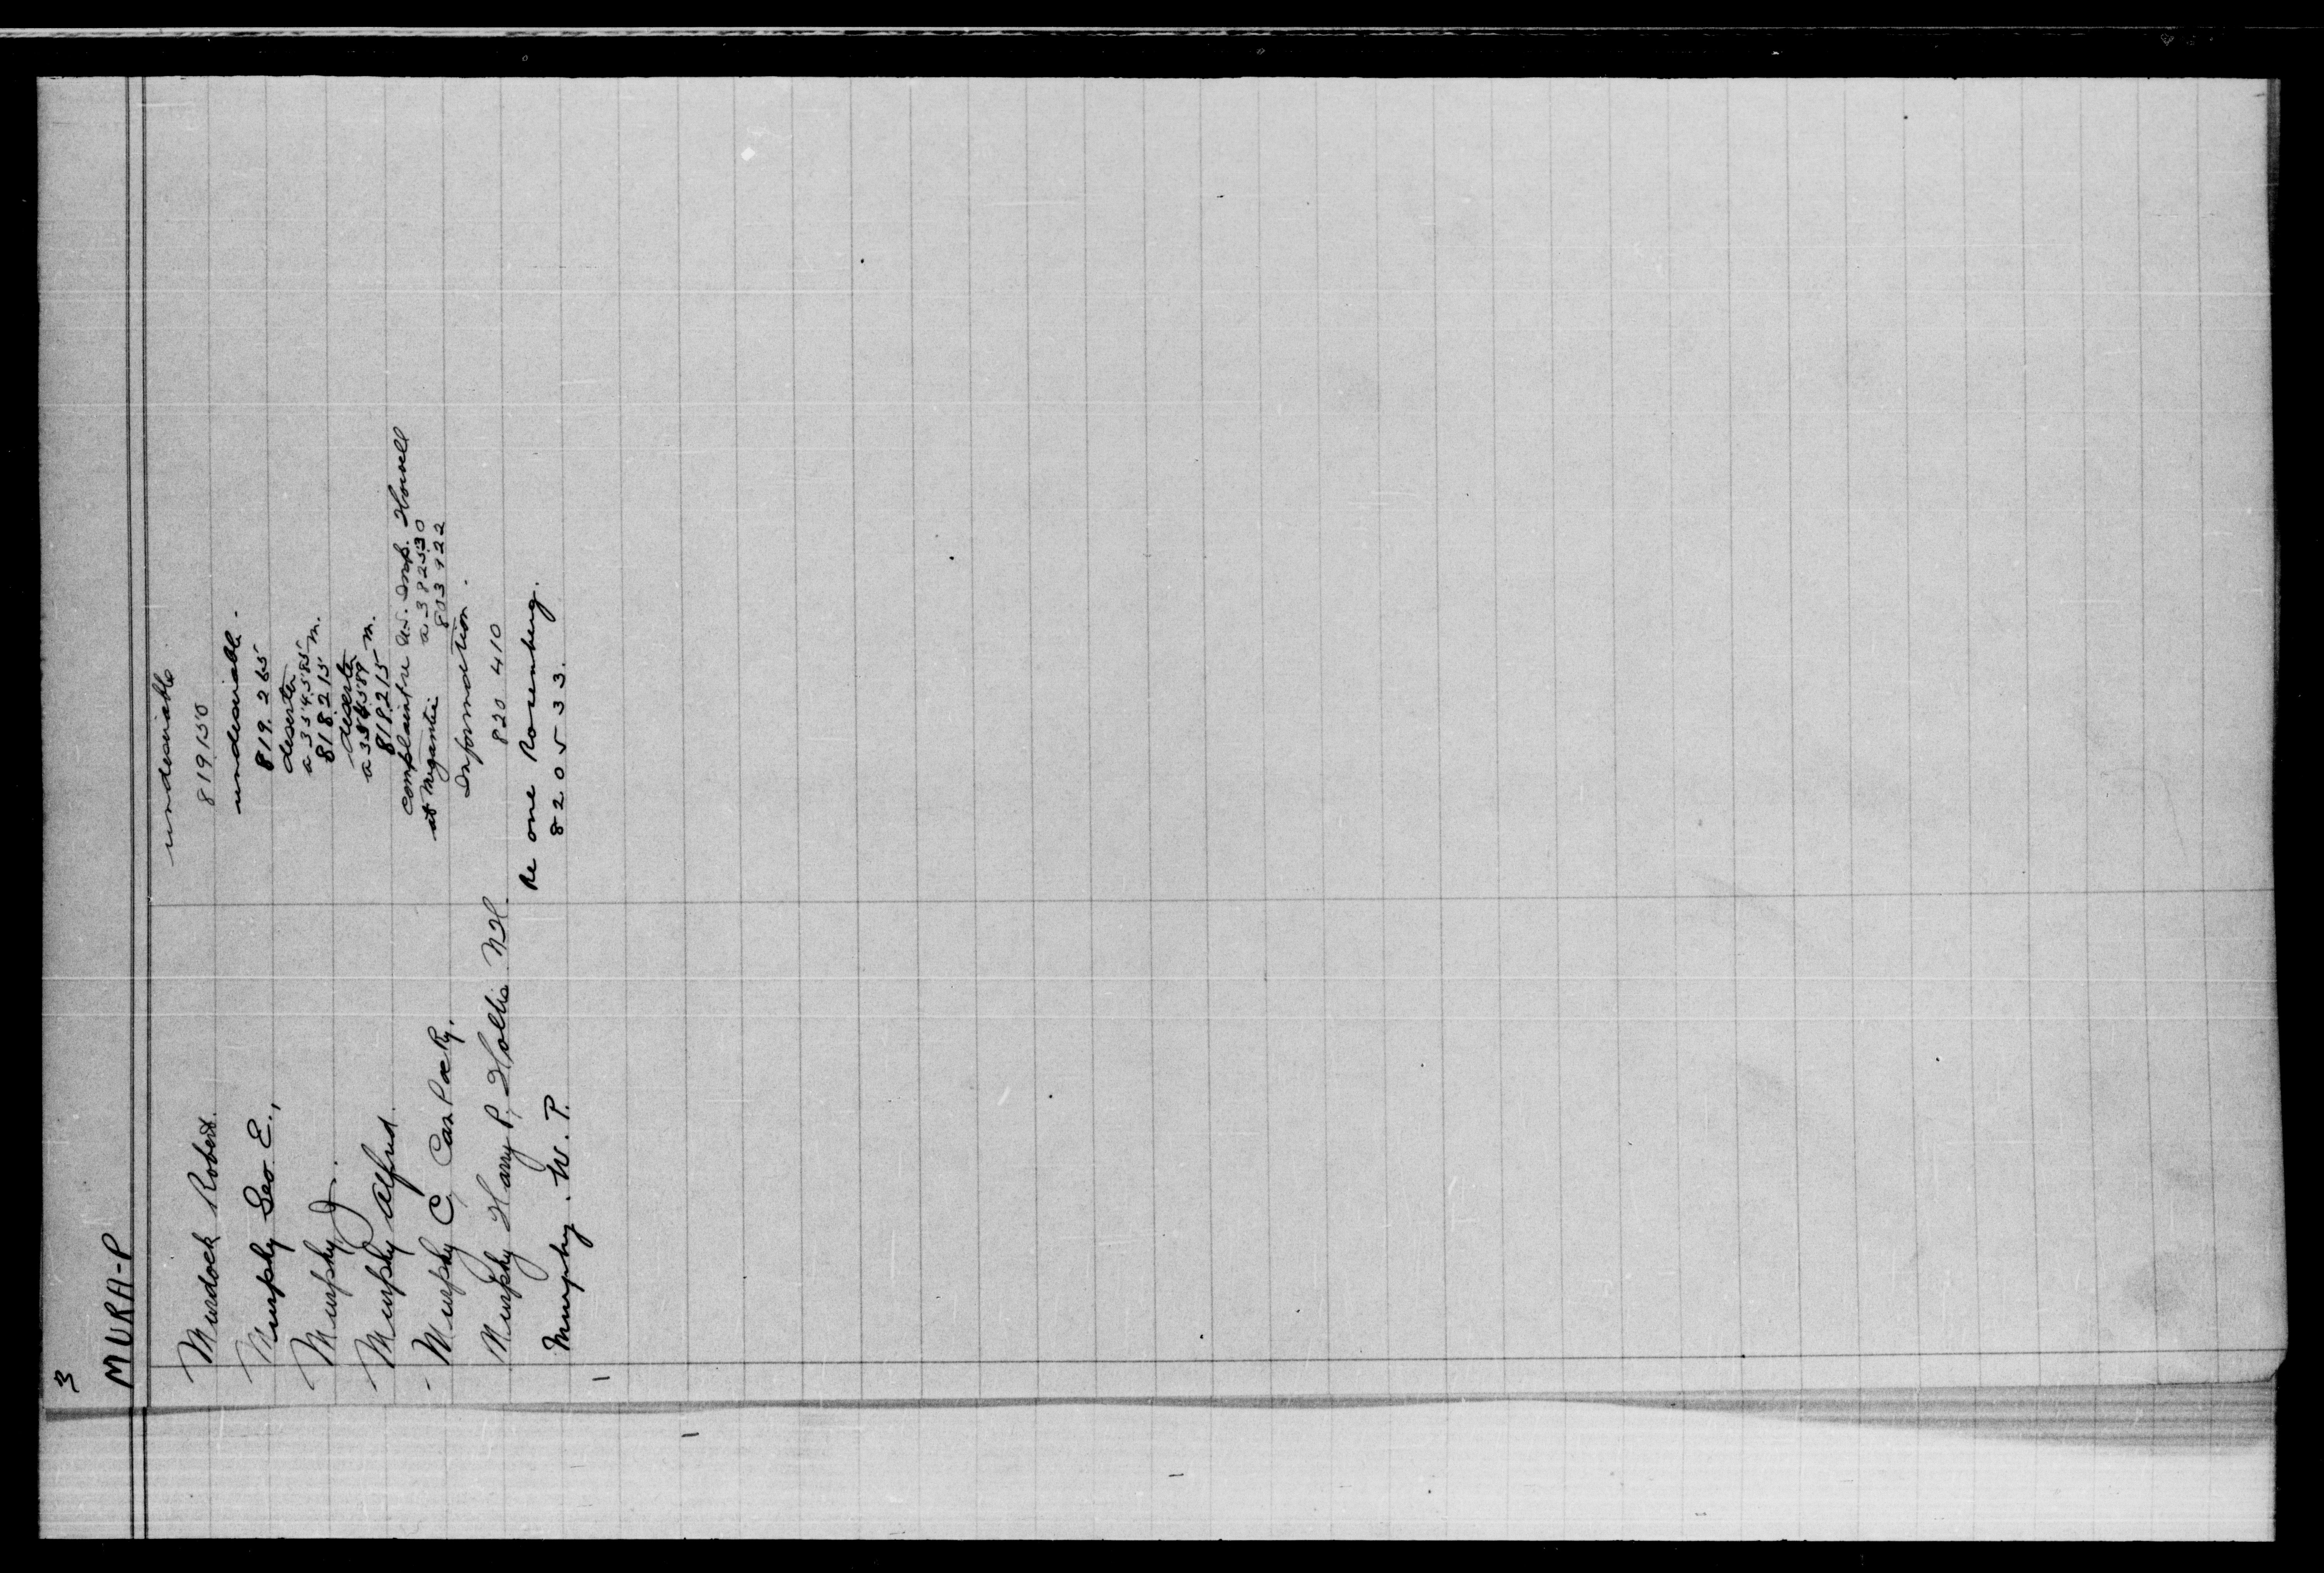 3
MURA-P
Murdock Robert. undesirable
819150
Murphy Geo. E., undesirable -
819.265
Murphy J. deserter
a 334585 m.
818215
Murphy Alfred. deserter
m.
818215
Murphy C, Can Pac Ry. complaint re U.S. Insp. Howell
at Megantic a 382530
803922
Murphy Harry P, Hollis NH. Information.
820 410
Murphy. W. P. Re one Rosenberg.
820533.